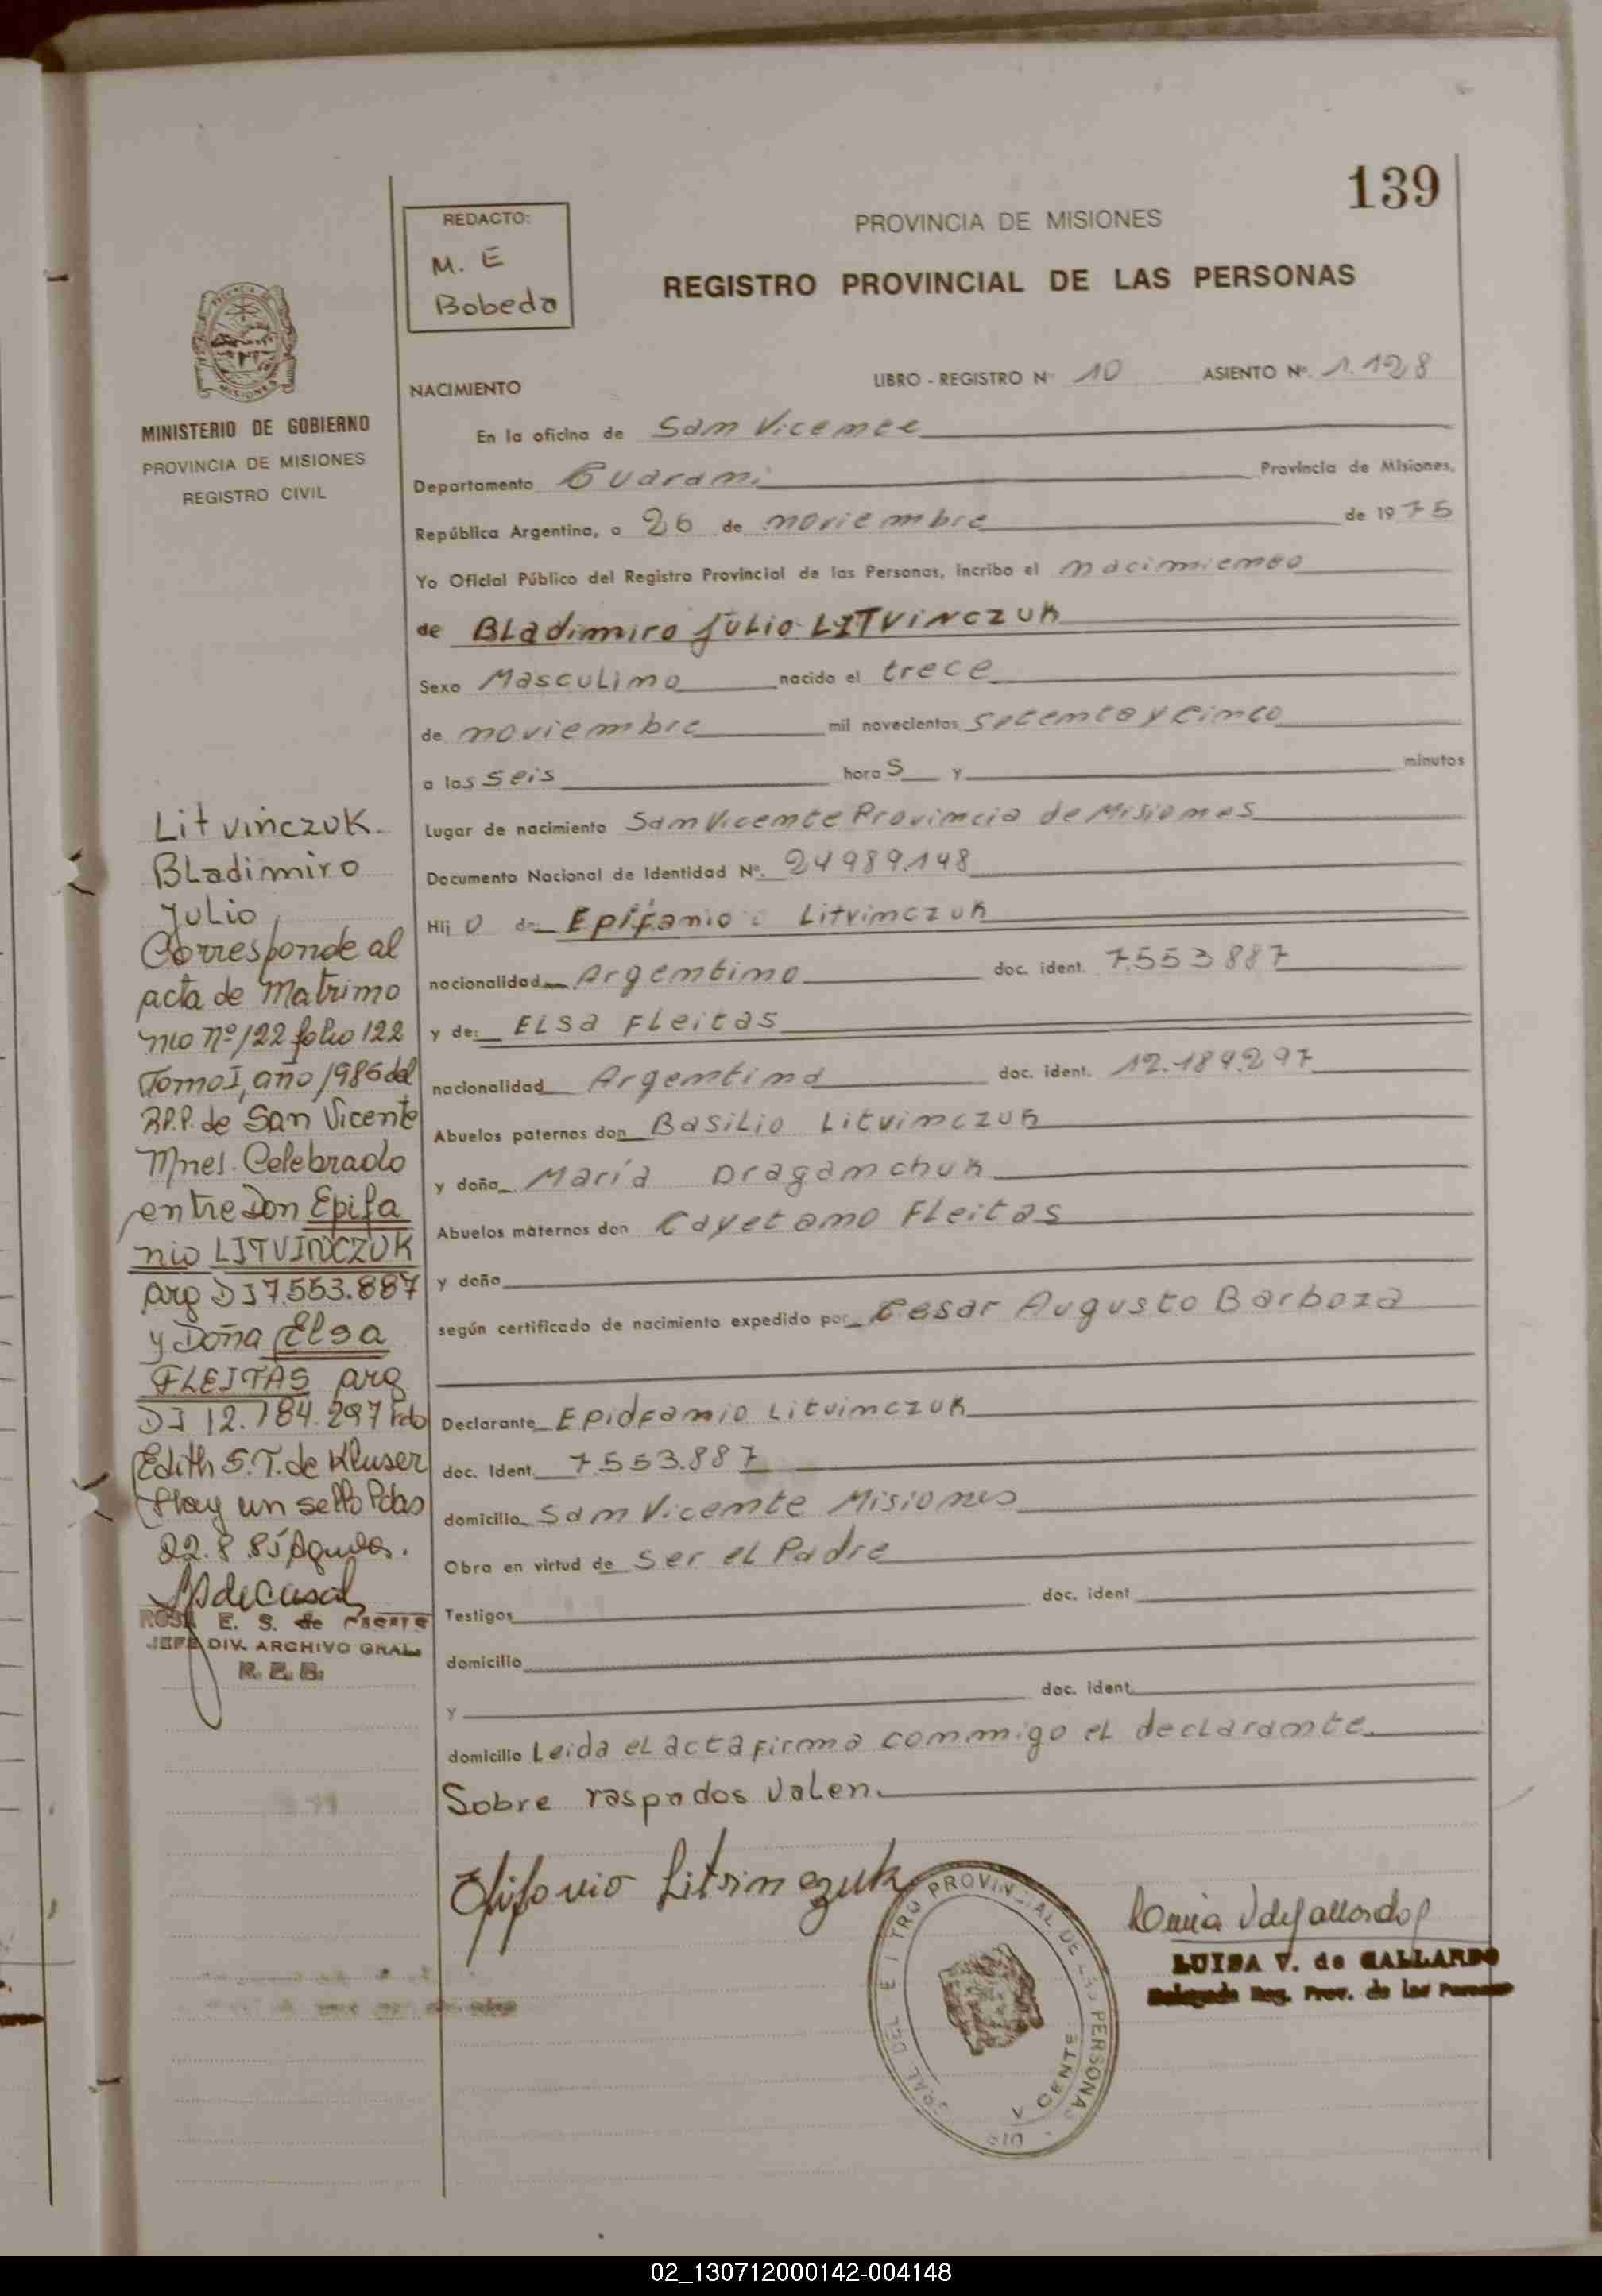 139
REDACTO:
M. E
Bobeda
PROVINCIA DE MISIONES
REGISTRO PROVINCIAL DE LAS PERSONAS
MINISTERIO DE GOBIERNO
PROVINCIA DE MISIONES
REGISTRO CIVIL
NACIMIENTO LIBRO - REGISTRO Nº 10 ASIENTO Nº. 1.128
En la oficina de San Vicente
Departamento Guarani Provincia de Misiones,
República Argentina, a 26 de noviembre de 1975
Yo Oficial Público del Registro Provincial de las Personas, incribo el nacimiento
de BLadimiro Julio LITVINCZUK
Sexo MascuLino nacido el trece
de noviembre mil novecientos setenta y cinco
a las seis horas y minutos
Lugar de nacimiento San Vicente Provincia de Misiones
Documento Nacional de Identidad Nº. 24989.148
Hijo de: Epifanio Litvinczuk
nacionalidad Argentino doc. ident. 7.553887
y de: ELsa FLeitas
nacionalidad Argentina doc. ident. 12.184.297
Abuelos paternos don BasiLio Litvinczuk
y doña María Draganchuk
Abuelos maternos don Cayetano FLeitas
y doña
según certificado de nacimiento expedido por Cesar Augusto Barboza
Declarante Epidfanio Litvinczuk
doc. Ident. 7.553.887
domicilio San Vicente Misiones
Obra en virtud de ser eL Padre
Testigos doc. ident
domicilio
y doc. ident.
domicilio Leida eL acta firma conmigo eL decLarante.
Sobre raspados valen.
Litvinczuk.
BLadimiro
JuLio
Corresponde al
acta de Matrimo
nio nº 122 folio 122
Tomo I, año 1986 del
R.P.P. de San Vicente
Mnes. Celebrado
entre Don Epifa
nio LITVINCZUK
arg DI 7.553.887
y Doña Elsa
FLEITAS arg
DI 12.184.297 Fdo
Edith S.T. de Kluser
Hay un sello Pdas
22.8.85
ROSA E. S. de
JEFE DIV. ARCHIVO GRAL.
Epifanio Litvinczuk
PROVINCIAL DE LAS PERSONAS
LUISA V. de GALLARDO
Delegada Reg. Prov. de las Personas
02_130712000142-004148